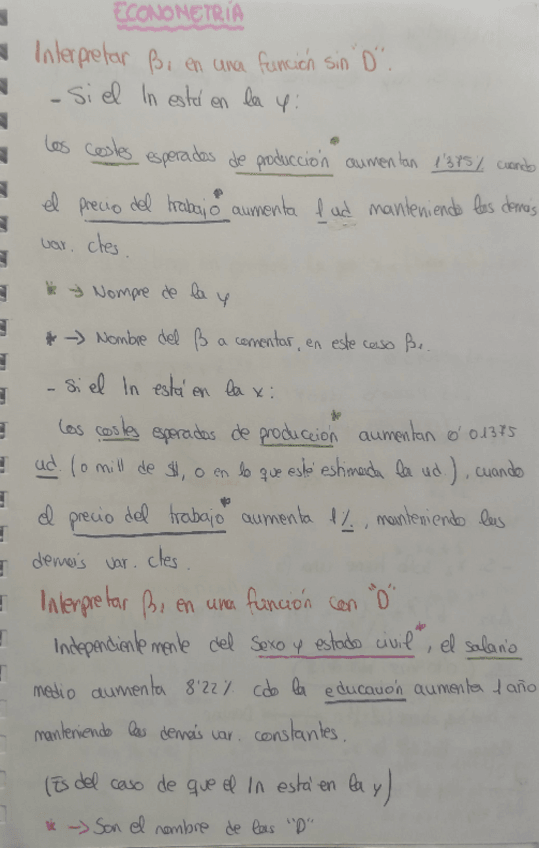 ECONOMETRÍA
Interpretar β₁ en una función sin "D".
- Si el ln está en la y:
Los costes esperados de producción* aumentan 1'375% cuando
el precio del trabajo* aumenta 1 ud manteniendo las demás
var. ctes.
* → Nompre de la y
* → Nombre del β a comentar, en este caso β₁.
- Si el ln está en la x:
Los costes esperados de producción* aumentan 0'01375
ud. (o mill de $, o en lo que esté estimada la ud.), cuando
el precio del trabajo* aumenta 1%, manteniendo las
demás var. ctes.
Interpretar β₁ en una función con "D"
Independientemente del sexo y estado civil*, el salario
medio aumenta 8'22% cdo la educación aumenta 1 año
manteniendo las demás var. constantes.
(Es del caso de que el ln está en la y)
* → Son el nombre de las "D"